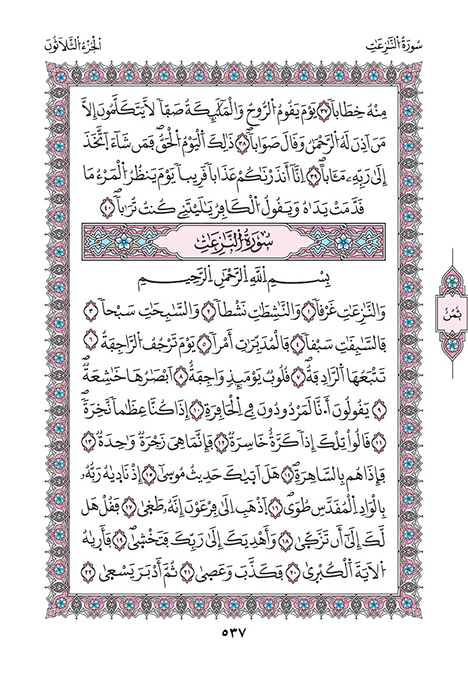 سُورَةُ النَّازِعَاتِ
الجُزْءُ الثَّلَاثُونَ
مِنْهُ خِطَاباً ٣٧ يَوْمَ يَقُومُ الرُّوحُ وَالْمَلَٰئِكَةُ صَفّاً لَّا يَتَكَلَّمُونَ إِلَّا
مَنْ أَذِنَ لَهُ الرَّحْمَٰنُ وَقَالَ صَوَاباً ٣٨ ذَٰلِكَ الْيَوْمُ الْحَقُّ فَمَن شَآءَ اتَّخَذَ
إِلَىٰ رَبِّهِ مَـَٔاباً ٣٩ إِنَّآ أَنذَرْنَٰكُمْ عَذَاباً قَرِيباً يَوْمَ يَنظُرُ الْمَرْءُ مَا
قَدَّمَتْ يَدَاهُ وَيَقُولُ الْكَافِرُ يَٰلَيْتَنِي كُنتُ تُرَٰباً ٤٠
سُورَةُ النَّازِعَاتِ
بِسْمِ اللَّهِ الرَّحْمَٰنِ الرَّحِيمِ
وَالنَّٰزِعَٰتِ غَرْقاً ١ وَالنَّٰشِطَٰتِ نَشْطاً ٢ وَالسَّٰبِحَٰتِ سَبْحاً ٣
فَالسَّٰبِقَٰتِ سَبْقاً ٤ فَالْمُدَبِّرَٰتِ أَمْراً ٥ يَوْمَ تَرْجُفُ الرَّاجِفَةُ ٦
تَتْبَعُهَا الرَّادِفَةُ ٧ قُلُوبٌ يَوْمَئِذٍ وَاجِفَةٌ ٨ أَبْصَٰرُهَا خَٰشِعَةٌ
٩ يَقُولُونَ أَٰنَّا لَمَرْدُودُونَ فِي الْحَافِرَةِ ١٠ إِذَا كُنَّا عِظَٰماً نَّخِرَةً
١١ قَالُواْ تِلْكَ إِذاً كَرَّةٌ خَاسِرَةٌ ١٢ فَإِنَّمَا هِيَ زَجْرَةٌ وَٰحِدَةٌ ١٣
فَإِذَا هُم بِالسَّاهِرَةِ ١٤ هَلْ أَتَىٰكَ حَدِيثُ مُوسَىٰ ١٥ إِذْ نَادَىٰهُ رَبُّهُ
بِالْوَادِ الْمُقَدَّسِ طُوَىٰ ١٦ اذْهَبِ الَىٰ فِرْعَوْنَ إِنَّهُ طَغَىٰ ١٧ فَقُلْ هَل
لَّكَ إِلَىٰ أَن تَزَّكَّىٰ ١٨ وَأَهْدِيَكَ إِلَىٰ رَبِّكَ فَتَخْشَىٰ ١٩ فَأَرَىٰهُ
الَايَةَ الْكُبْرَىٰ ٢٠ فَكَذَّبَ وَعَصَىٰ ٢١ ثُمَّ أَدْبَرَ يَسْعَىٰ ٢٢
ثُمُن
٥٣٧